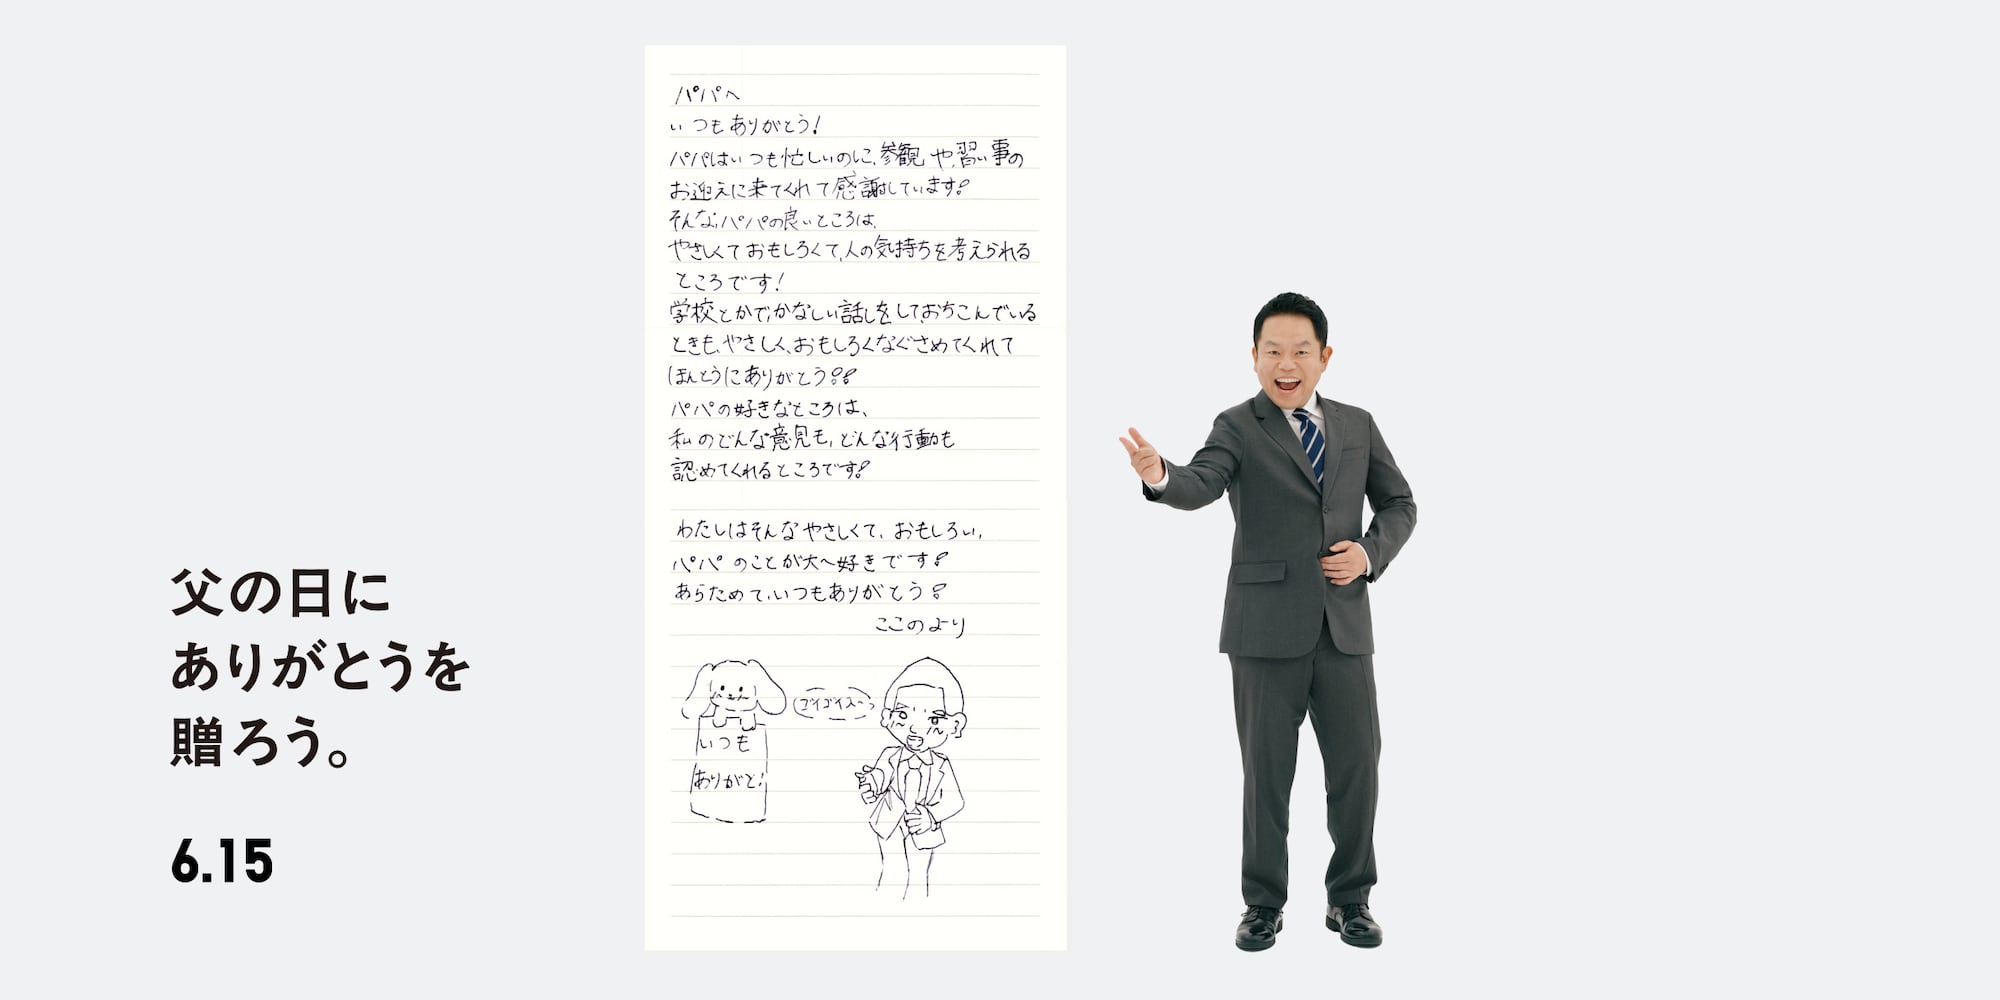 父の日に
ありがとうを
贈ろう。
6.15
パパへ
いつもありがとう!
パパはいつも忙しいのに、参観や、習い事の
お迎えに来てくれて感謝しています!
そんな、パパの良いところは、
やさしくておもしろくて、人の気持ちを考えられる
ところです!
学校とかで、かなしい話しをして、おちこんでいる
ときも、やさしく、おもしろくなぐさめてくれて
ほんとうにありがとう!!
パパの好きなところは、
私のどんな意見も、どんな行動も
認めてくれるところです!
わたしはそんなやさしくて、おもしろい、
パパのことが大〜好きです!
あらためて、いつもありがとう!
ここのより
ゴイゴイスー
いつも
ありがと!